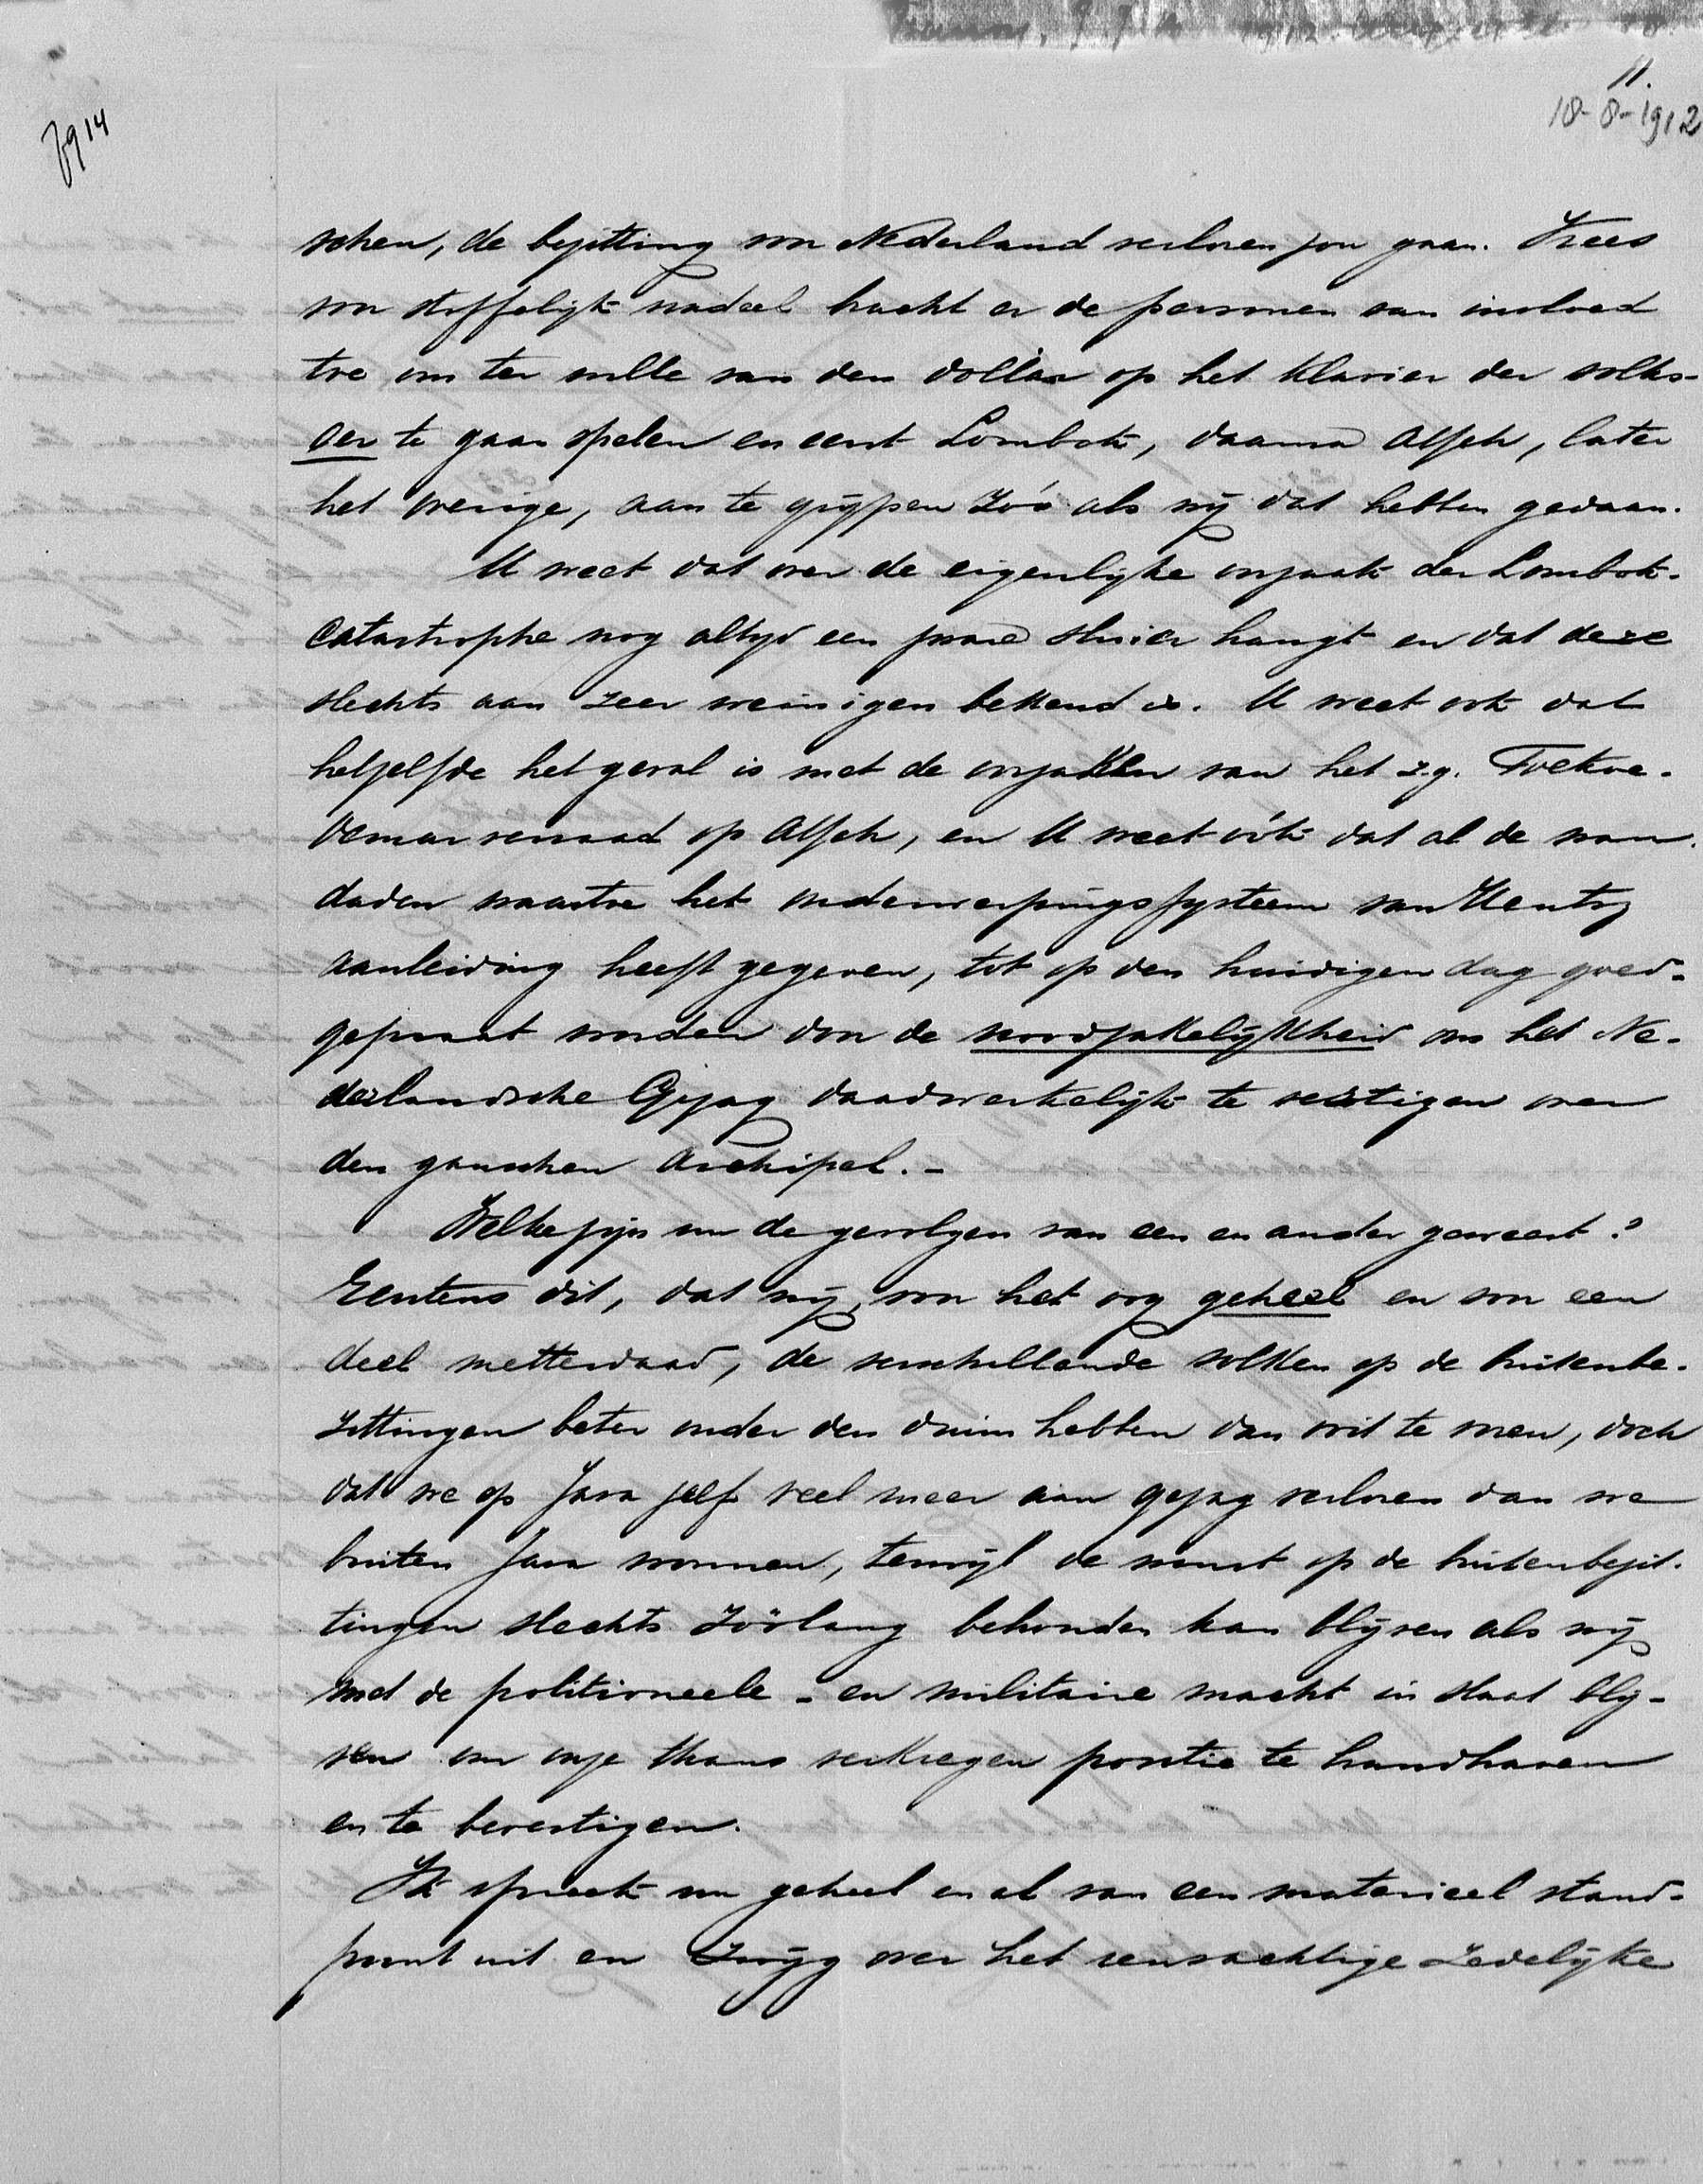 11.
18-8-1912
schen, de bezitting voor Nederland verloren zou gaan. Vrees
voor stoffelijk nadeel bracht er de personen van invloed
toe om ter wille van den dollar op het klavier der volks-
eer te gaan spelen en eerst Lombok, daarna Atjeh, later
het overige, aan te grijpen zóó als wij dat hebben gedaan.
U weet dat over de eigenlijke oorzaak der Lombok-
catastrophe nog altijd een zware sluier hangt en dat deze
slechts aan zeer weinigen bekend is. U weet ook dat
hetzelfde het geval is met de oorzaken van het z.g. Toekoe-
Oemar verraad op Atjeh, en U weet óók dat al de wan-
daden waartoe het onderwerpingssysteem van Heutsz
aanleiding heeft gegeven, tot op den huidigen dag goed-
gepraat worden door de noodzakelijkheid om het Ne-
derlandsche Gezag daadwerkelijk te vestigen over
den ganschen Archipel. -
Welke zijn nu de gevolgen van een en ander geweest?
Eerstens dit, dat wij, voor het oog geheel en voor een
deel metterdaad, de verschillende volken op de buitenbe-
zittingen beter onder den duim hebben dan ooit te voren, doch
dat we op Java zelf veel meer aan gezag verloren dan we
buiten Java wonnen, terwijl de winst op de buitenbezit-
tingen slechts zóólang behouden kan blijven als wij
met de politioneele - en militaire macht in staat blij-
ven om onze thans verkregen positie te handhaven
en te bevestigen.
Ik spreek nu geheel en al van een materieel stand-
punt uit en zwijg over het reusachtige zedelijke